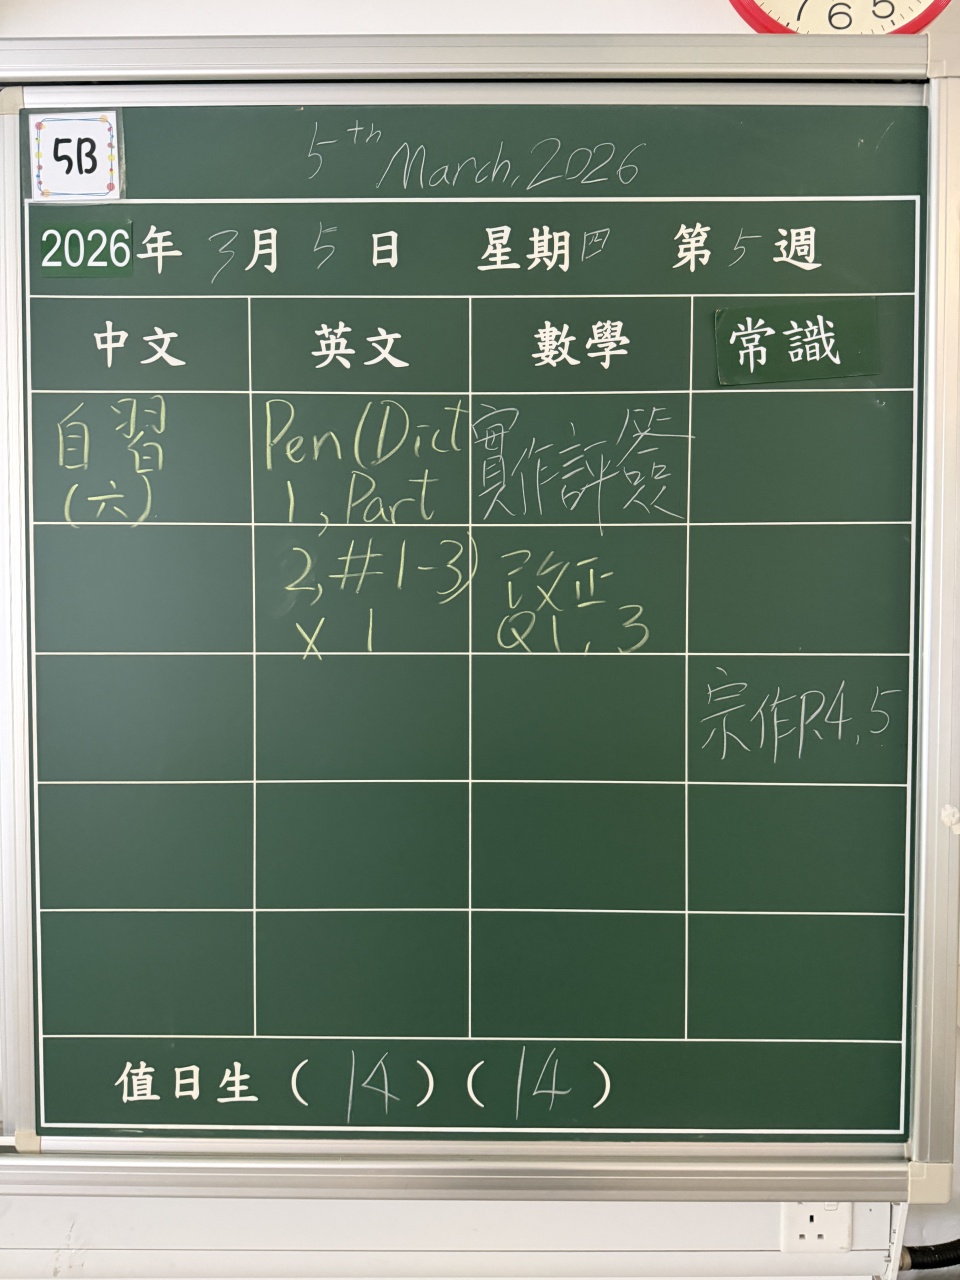 7 6 5
5B
5th March, 2026
2026年 3月 5日 星期四 第5週
中文 英文 數學 常識
自習
(六)
Pen (Dict
1, Part
2, #1-3)
x 1
實作評簽
改正
Q1, 3
宗作P.4, 5
值日生 ( 14 ) ( 14 )